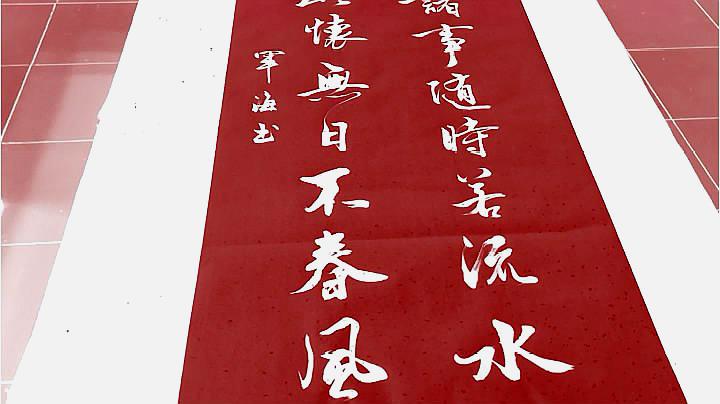 諸事随時若流水
懷無日不春風
軍海书